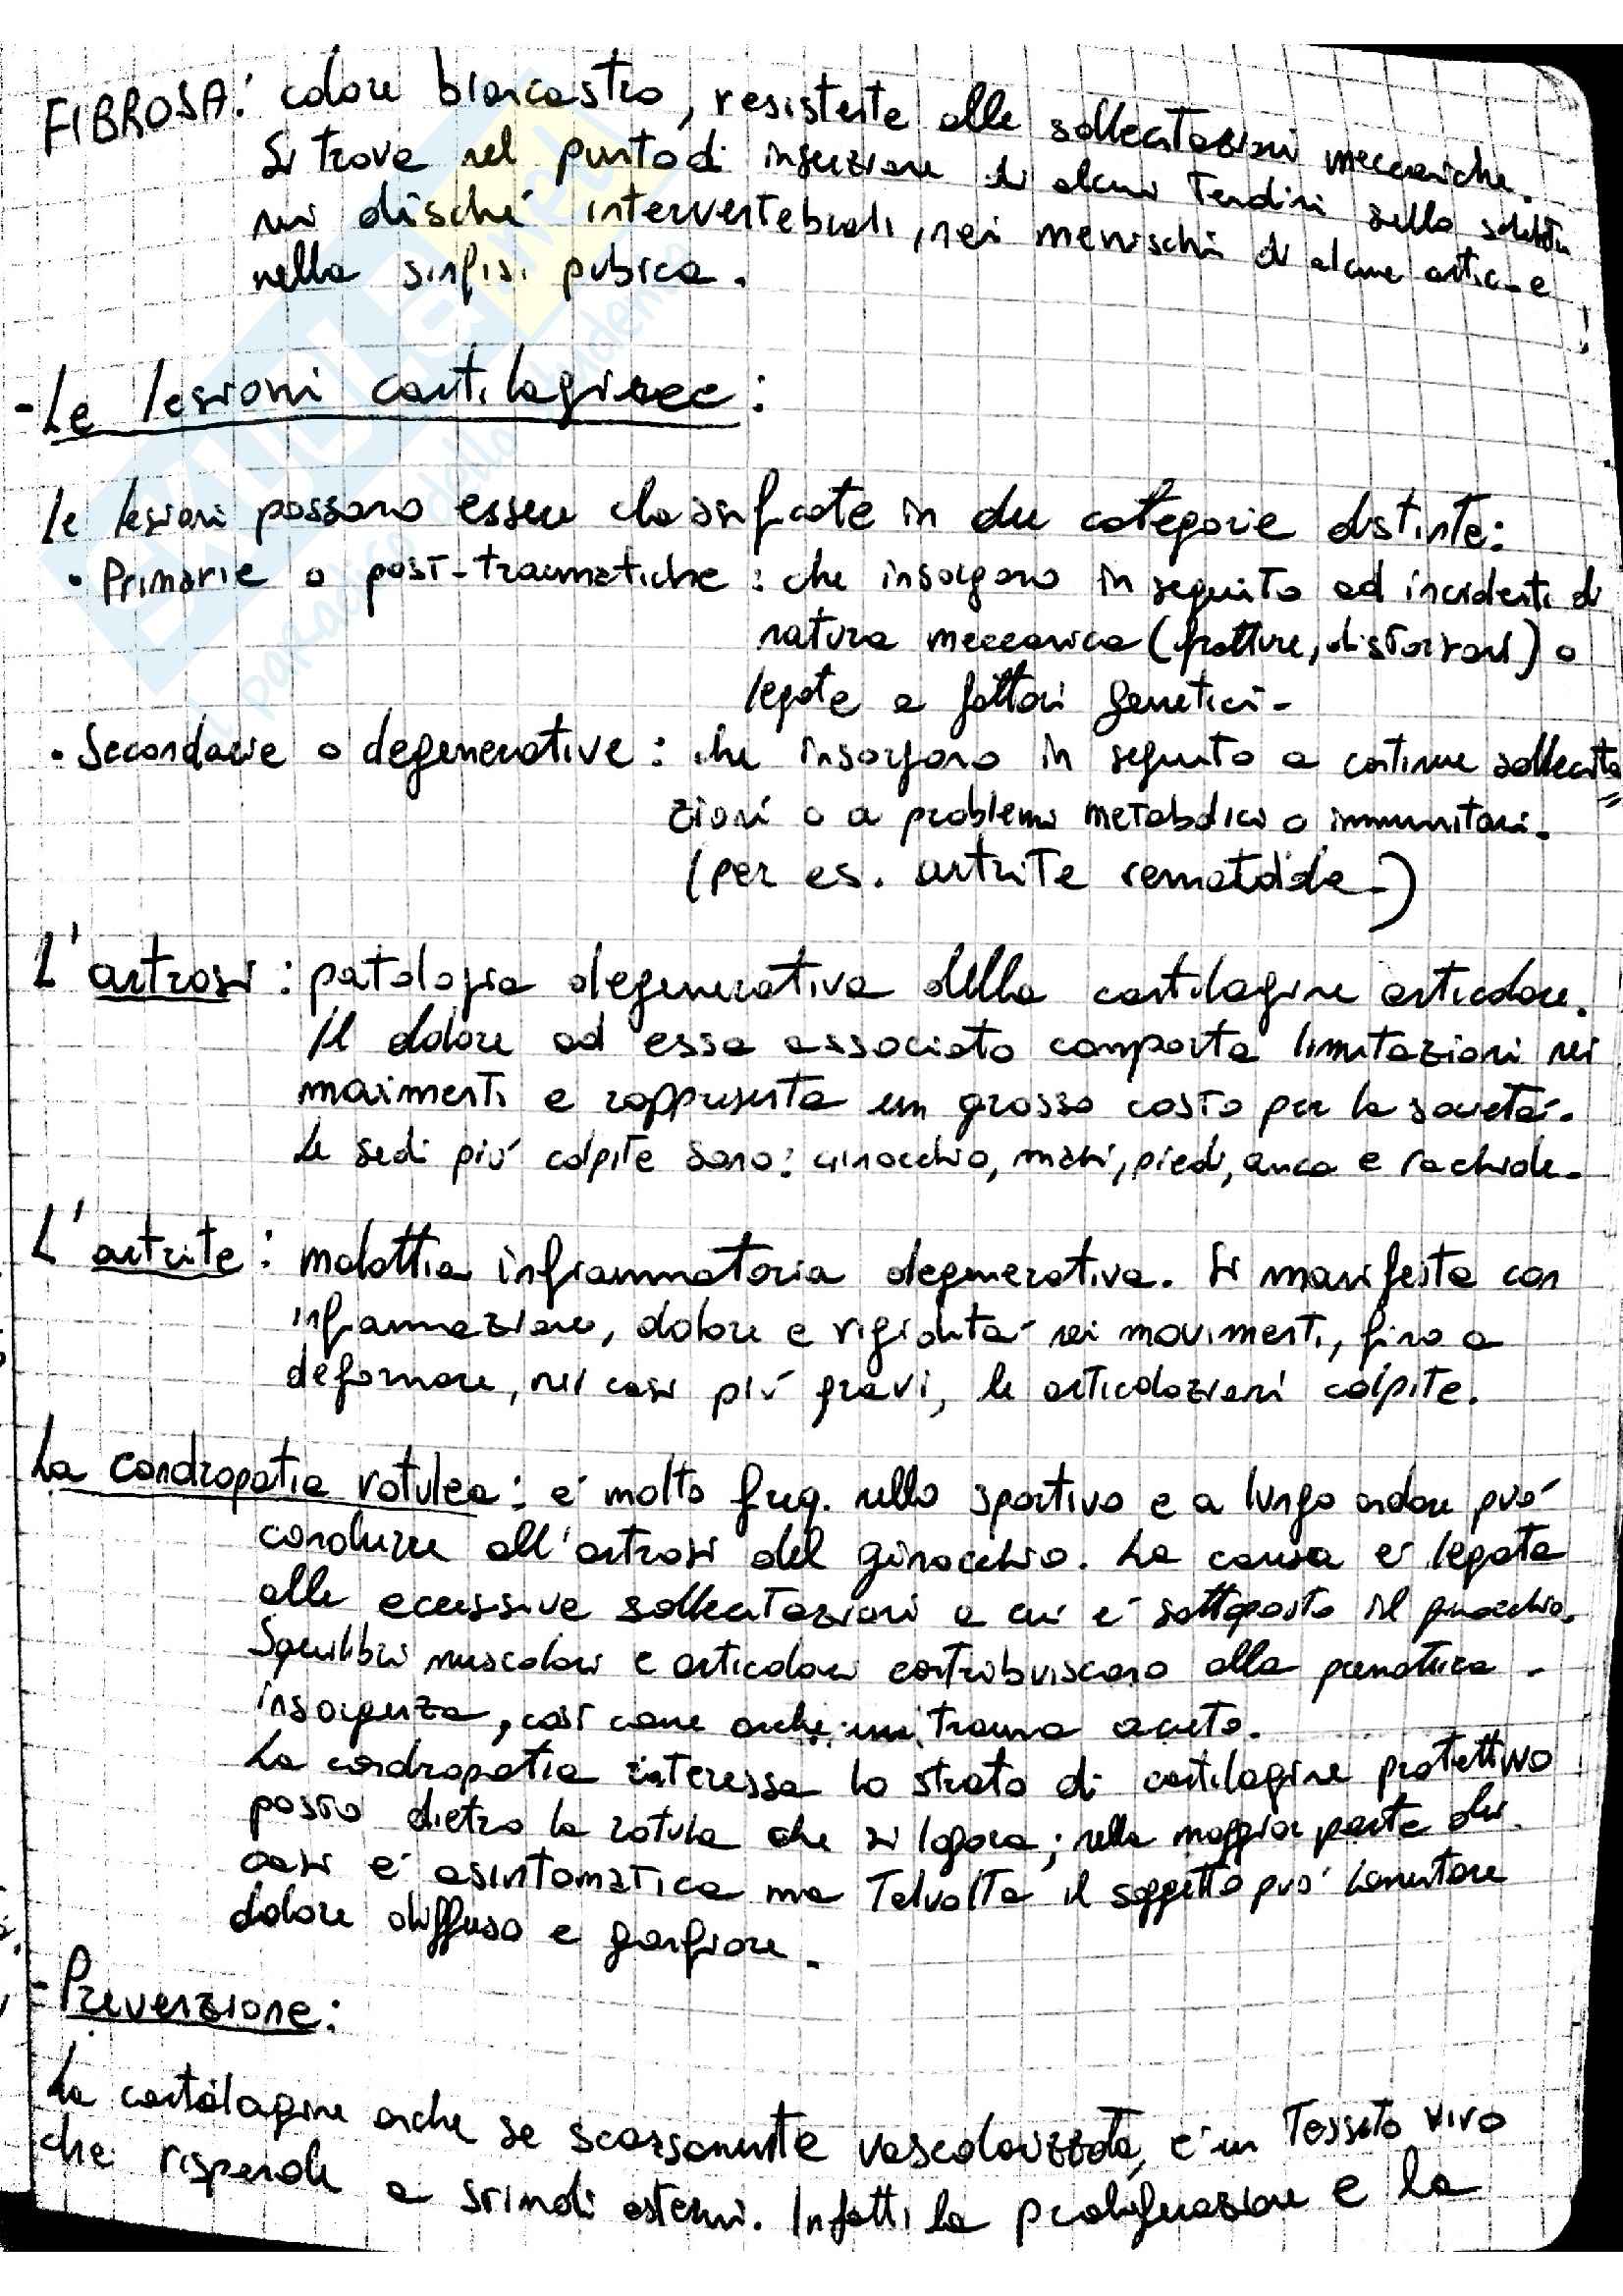 FIBROSA: colore biancastro, resistente alle sollecitazioni meccaniche.
Si trova nel punto di inserzione di alcuni tendini sullo scheletro
nei dischi intervertebrali, nei menischi di alcune artic. e
nella sinfisi pubica.
- Le lesioni cartilaginee:
Le lesioni possono essere classificate in due categorie distinte:
• Primarie o post-traumatiche: che insorgono in seguito ad incidenti di
natura meccanica (fratture, distorsioni) o
legate a fattori genetici.
• Secondarie o degenerative: che insorgono in seguito a continue sollecita=
zioni o a problemi metabolici o immunitari.
(per es. artrite rematoide.)
L'artrosi: patologia degenerativa della cartilagine articolare.
Il dolore ad essa associato comporta limitazioni nei
movimenti e rappresenta un grosso costo per la società.
Le sedi più colpite sono: ginocchio, mani, piedi, anca e rachide.
L'artrite: malattia infiammatoria degenerativa. Si manifesta con
infiammazione, dolore e rigidità nei movimenti, fino a
deformare, nei casi più gravi, le articolazioni colpite.
La condropatia rotulea: è molto freq. nello sportivo e a lungo andare può
condurre all'artrosi del ginocchio. La causa è legata
alle eccessive sollecitazioni a cui è sottoposto il ginocchio.
Squilibri muscolari e articolari contribuiscono alla prematura
insorgenza, così come anche un trauma acuto.
La condropatia interessa lo strato di cartilagine protettivo
posto dietro la rotula che si logora; nella maggior parte dei
casi è asintomatica ma talvolta il soggetto può lamentare
dolore diffuso e gonfiore.
- Prevenzione:
La cartilagine anche se scarsamente vascolarizzata, è un tessuto vivo
che risponde a stimoli esterni. Infatti la proliferazione e la